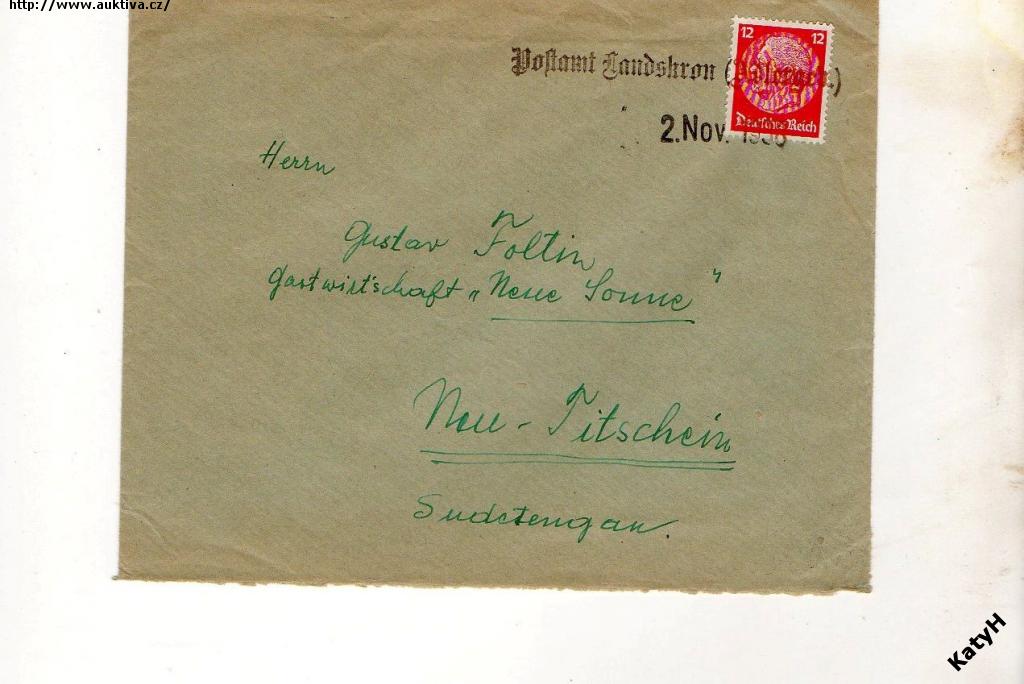 http://www.auktiva.cz/
12 12
Postamt Landskron (Adlergeb.)
Deutsches Reich
2. Nov. 1938
Herrn
Gustav Foltin
Gastwirtschaft „Neue Sonne"
Neu-Titschein
Sudetengau.
KatyH